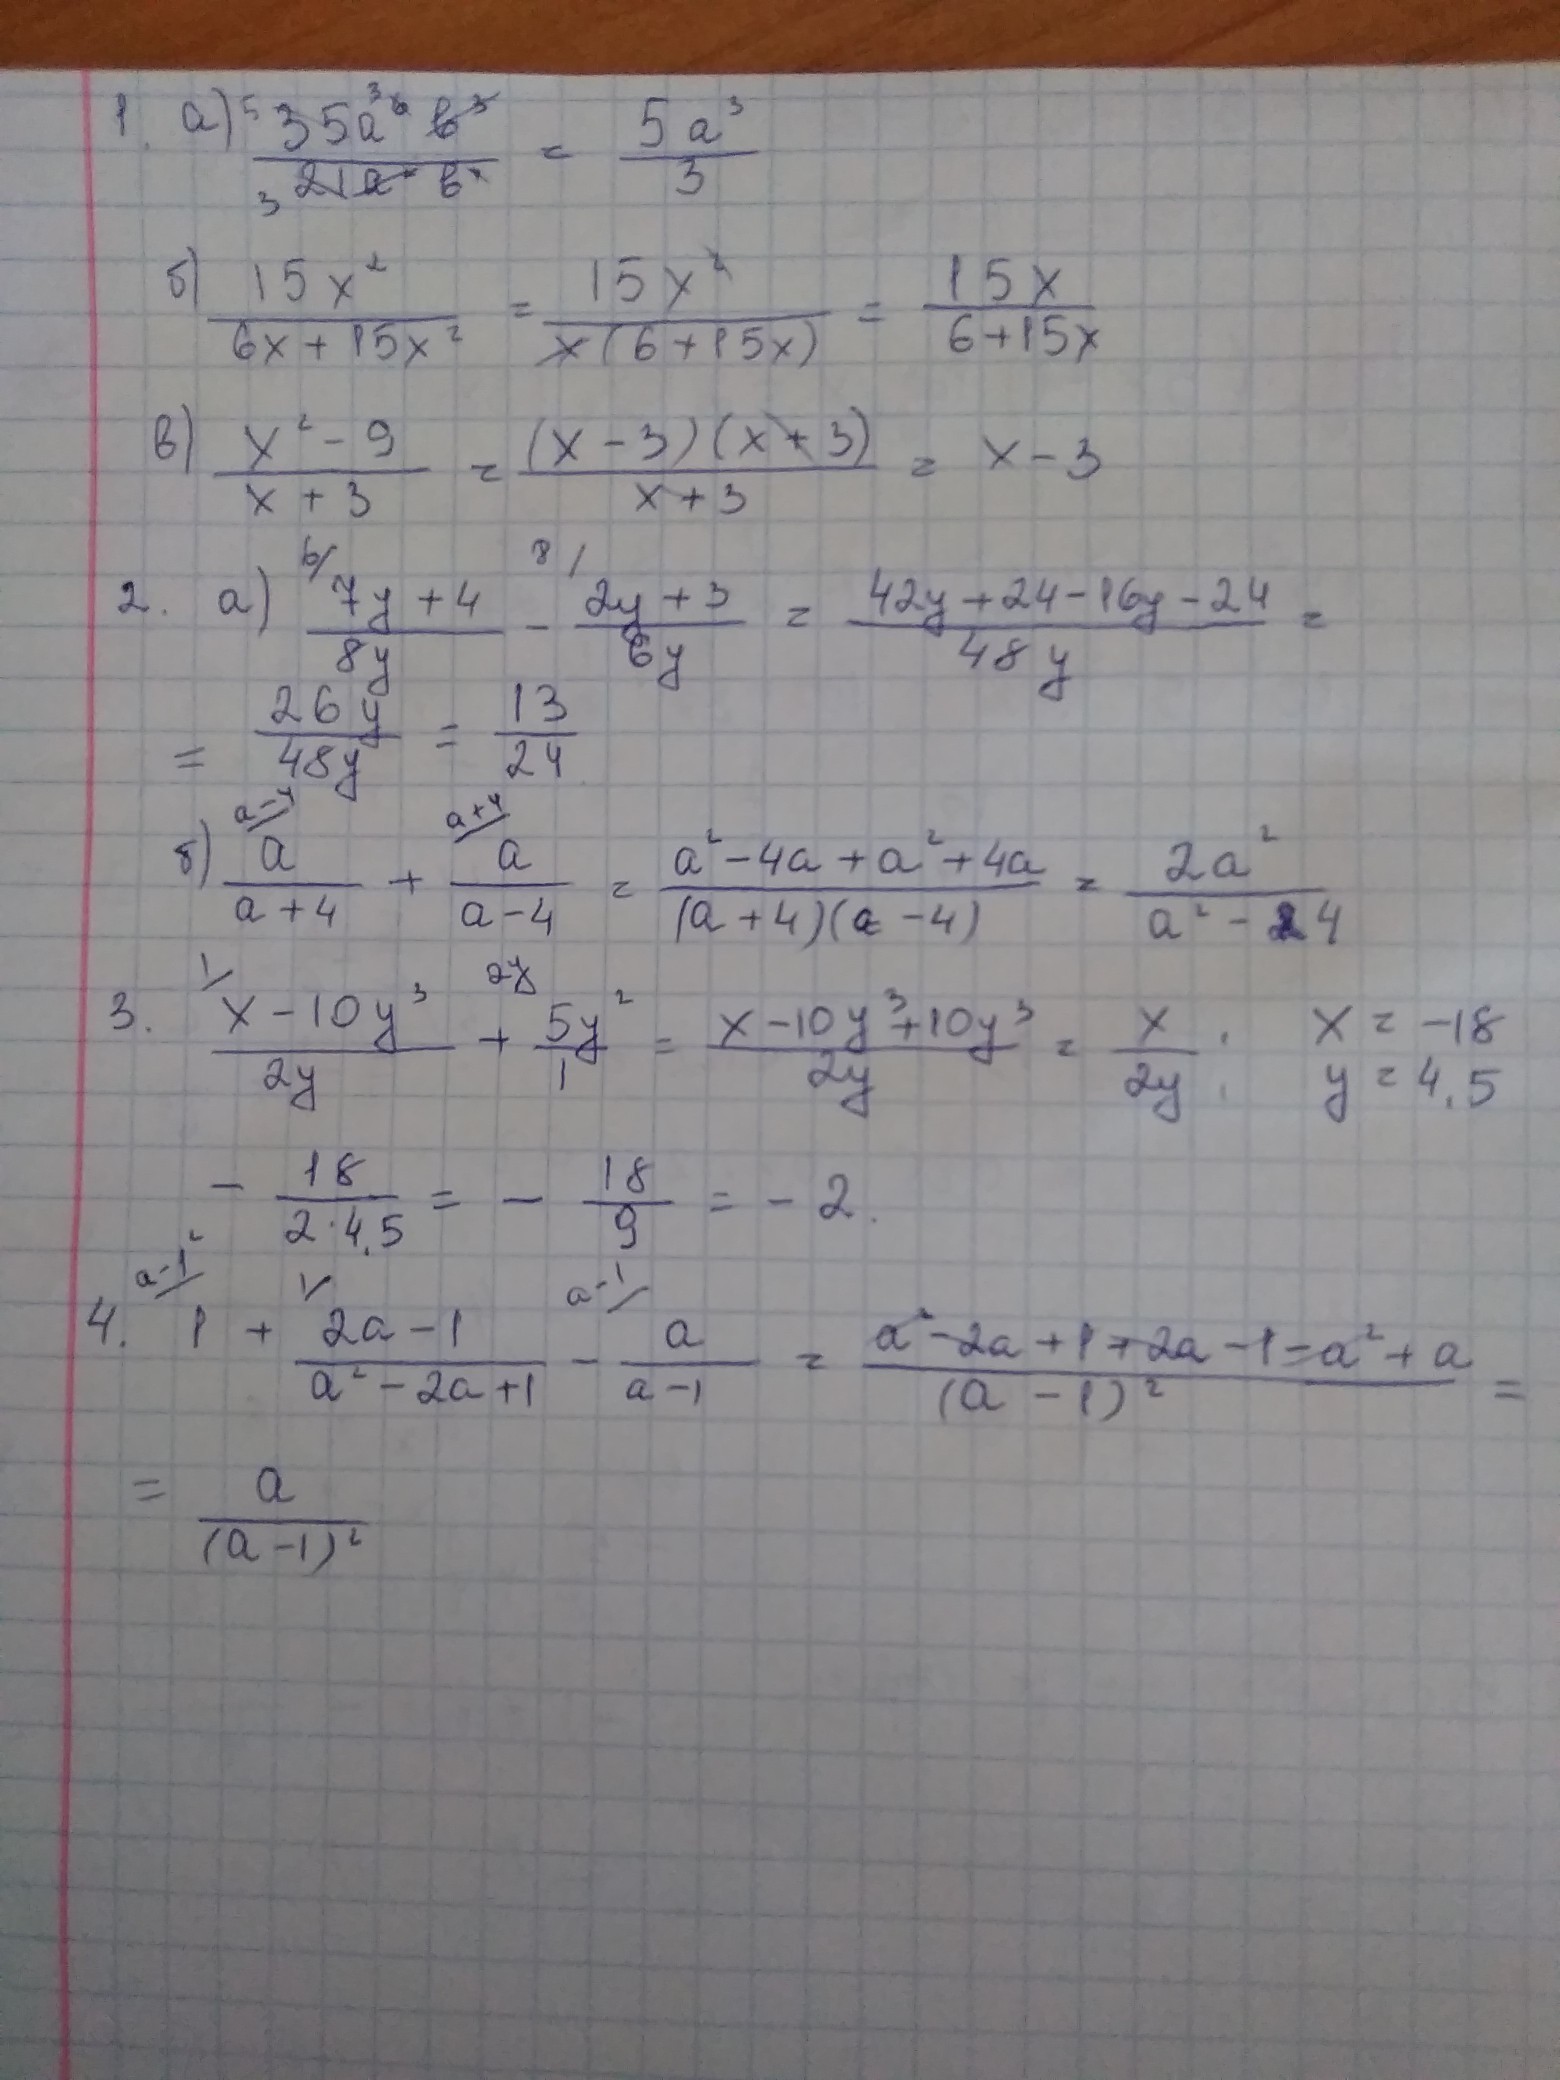 1. а) ⁵35a³⁶b³ / ₃21a b = 5a³ / 3
б) 15x² / (6x + 15x²) = 15x² / x(6 + 15x) = 15x / (6 + 15x)
в) (x² - 9) / (x + 3) = (x - 3)(x + 3) / (x + 3) = x - 3
2. а) 6/ (7y + 4) / 8y - 8/ (2y + 3) / 6y = (42y + 24 - 16y - 24) / 48y =
= 26y / 48y = 13 / 24
б) a-4/ a / (a + 4) + a+4/ a / (a - 4) = (a² - 4a + a² + 4a) / (a + 4)(a - 4) = 2a² / (a² - 4)
3. 1/ (x - 10y³) / 2y + 2y/ 5y² / 1 = (x - 10y³ + 10y³) / 2y = x / 2y ; x = -18
y = 4,5
- 18 / (2·4,5) = - 18 / 9 = - 2.
4. a-1²/ 1 + 1/ (2a - 1) / (a² - 2a + 1) - a-1/ a / (a - 1) = (a² - 2a + 1 + 2a - 1 - a² + a) / (a - 1)² =
= a / (a - 1)²